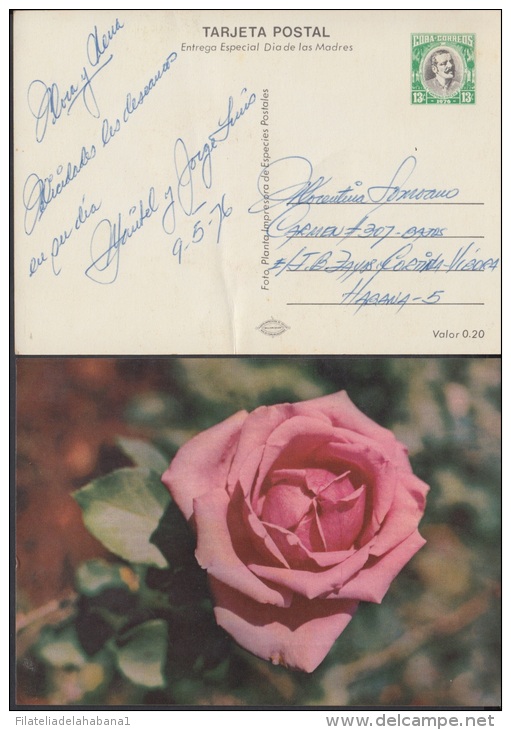 TARJETA POSTAL
Entrega Especial Dia de las Madres
CUBA·CORREOS
13¢ 13¢
1976
Flora y Elena
Felicidades les deseamos
en su día
y Jorge Luis
9-5-76
Foto, Planta Impresora de Especies Postales
Florentina Lonzano
Carmen # 307-bajos
e/ J.B Zayas y Cortina-Vívora
Habana-5
Valor 0.20
Filateliadelahabana1
www.delcampe.net